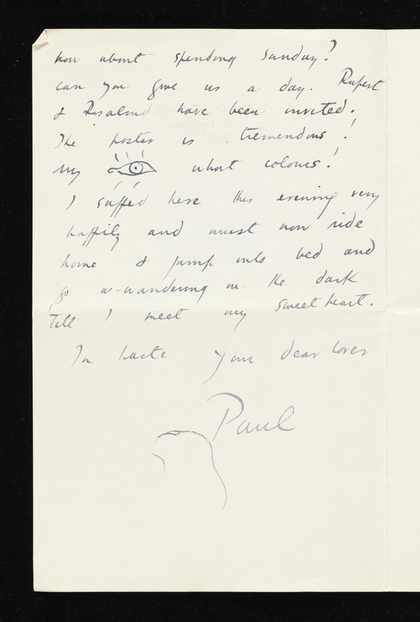 how about spending Sunday?
can you give us a day. Rupert
& Rosalind have been invited.
The poster is tremendous!
My what colours!
I supped here this evening very
happily and must now ride
home & jump into bed and
go a-wandering in the dark
till I meet my sweetheart.
In haste your dear lover
Paul